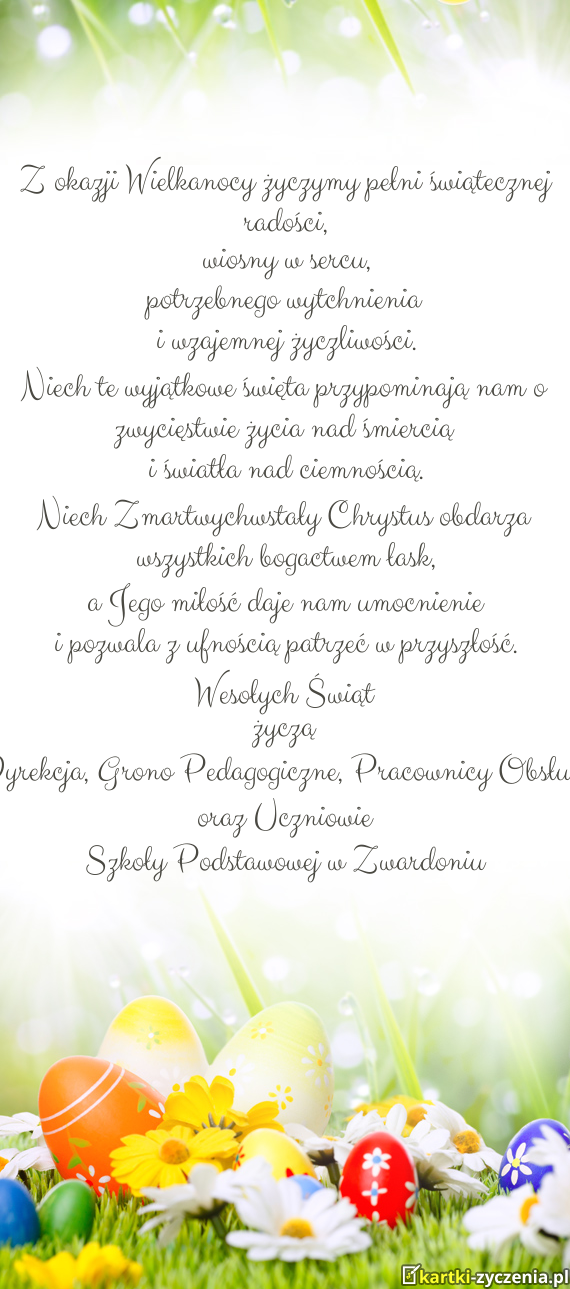 Z okazji Wielkanocy życzymy pełni świątecznej
radości,
wiosny w sercu,
potrzebnego wytchnienia
i wzajemnej życzliwości.
Niech te wyjątkowe święta przypominają nam o
zwycięstwie życia nad śmiercią
i światła nad ciemnością.
Niech Zmartwychwstały Chrystus obdarza
wszystkich bogactwem łask,
a Jego miłość daje nam umocnienie
i pozwala z ufnością patrzeć w przyszłość.
Wesołych Świąt
życzą
Dyrekcja, Grono Pedagogiczne, Pracownicy Obsłu
oraz Uczniowie
Szkoły Podstawowej w Zwardoniu
kartki-zyczenia.pl